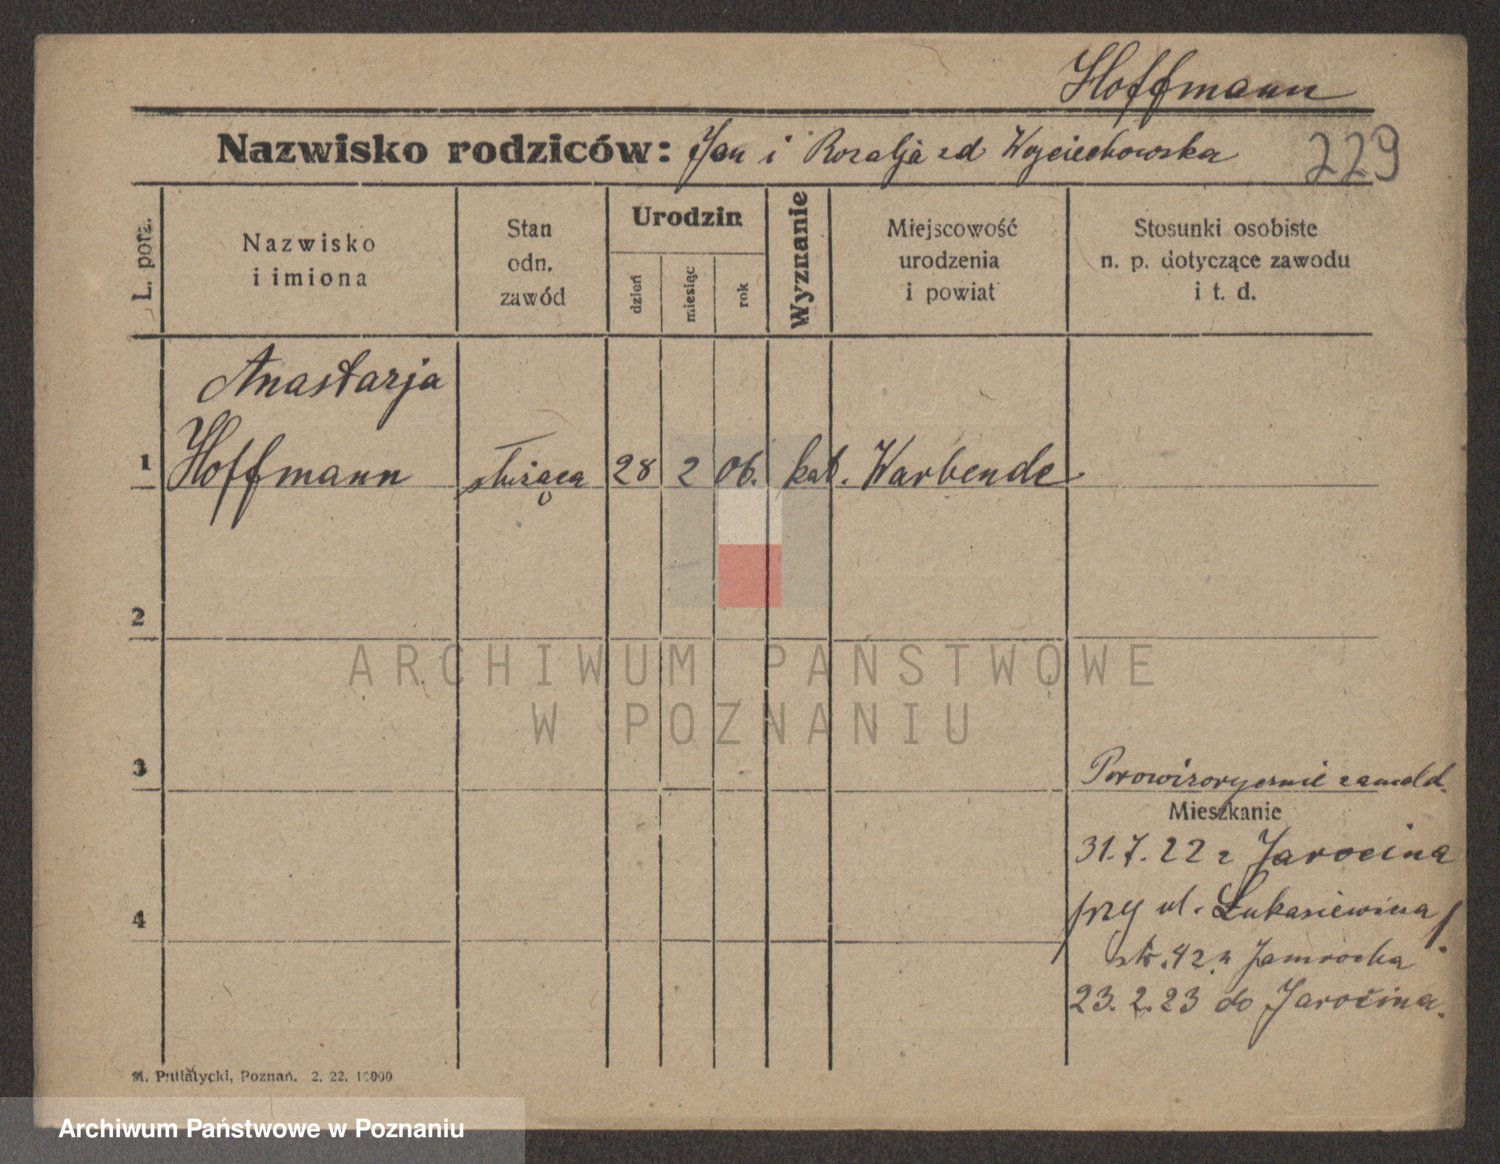 Hoffmann
Nazwisko rodziców: Jan i Rozalja zd Wojciechowska
229
L. porz.
Nazwisko
i imiona
Stan
odn.
zawód
Urodzin
dzień
miesiąc
rok
Wyznanie
Miejscowość
urodzenia
i powiat
Stosunki osobiste
n. p. dotyczące zawodu
i t. d.
Anastazja
1 Hoffmann służąca 28 2 06. kat. Warbende
2
ARCHIWUM PAŃSTWOWE
W POZNANIU
3
Prowizorycznie zameld.
Mieszkanie
31.7.22 z Jarocina
4
przy ul. Łukasiewicza
42 u Jamrocha
23.2.23 do Jarocina.
M. Putiatycki, Poznań. 2. 22. 10000
Archiwum Państwowe w Poznaniu